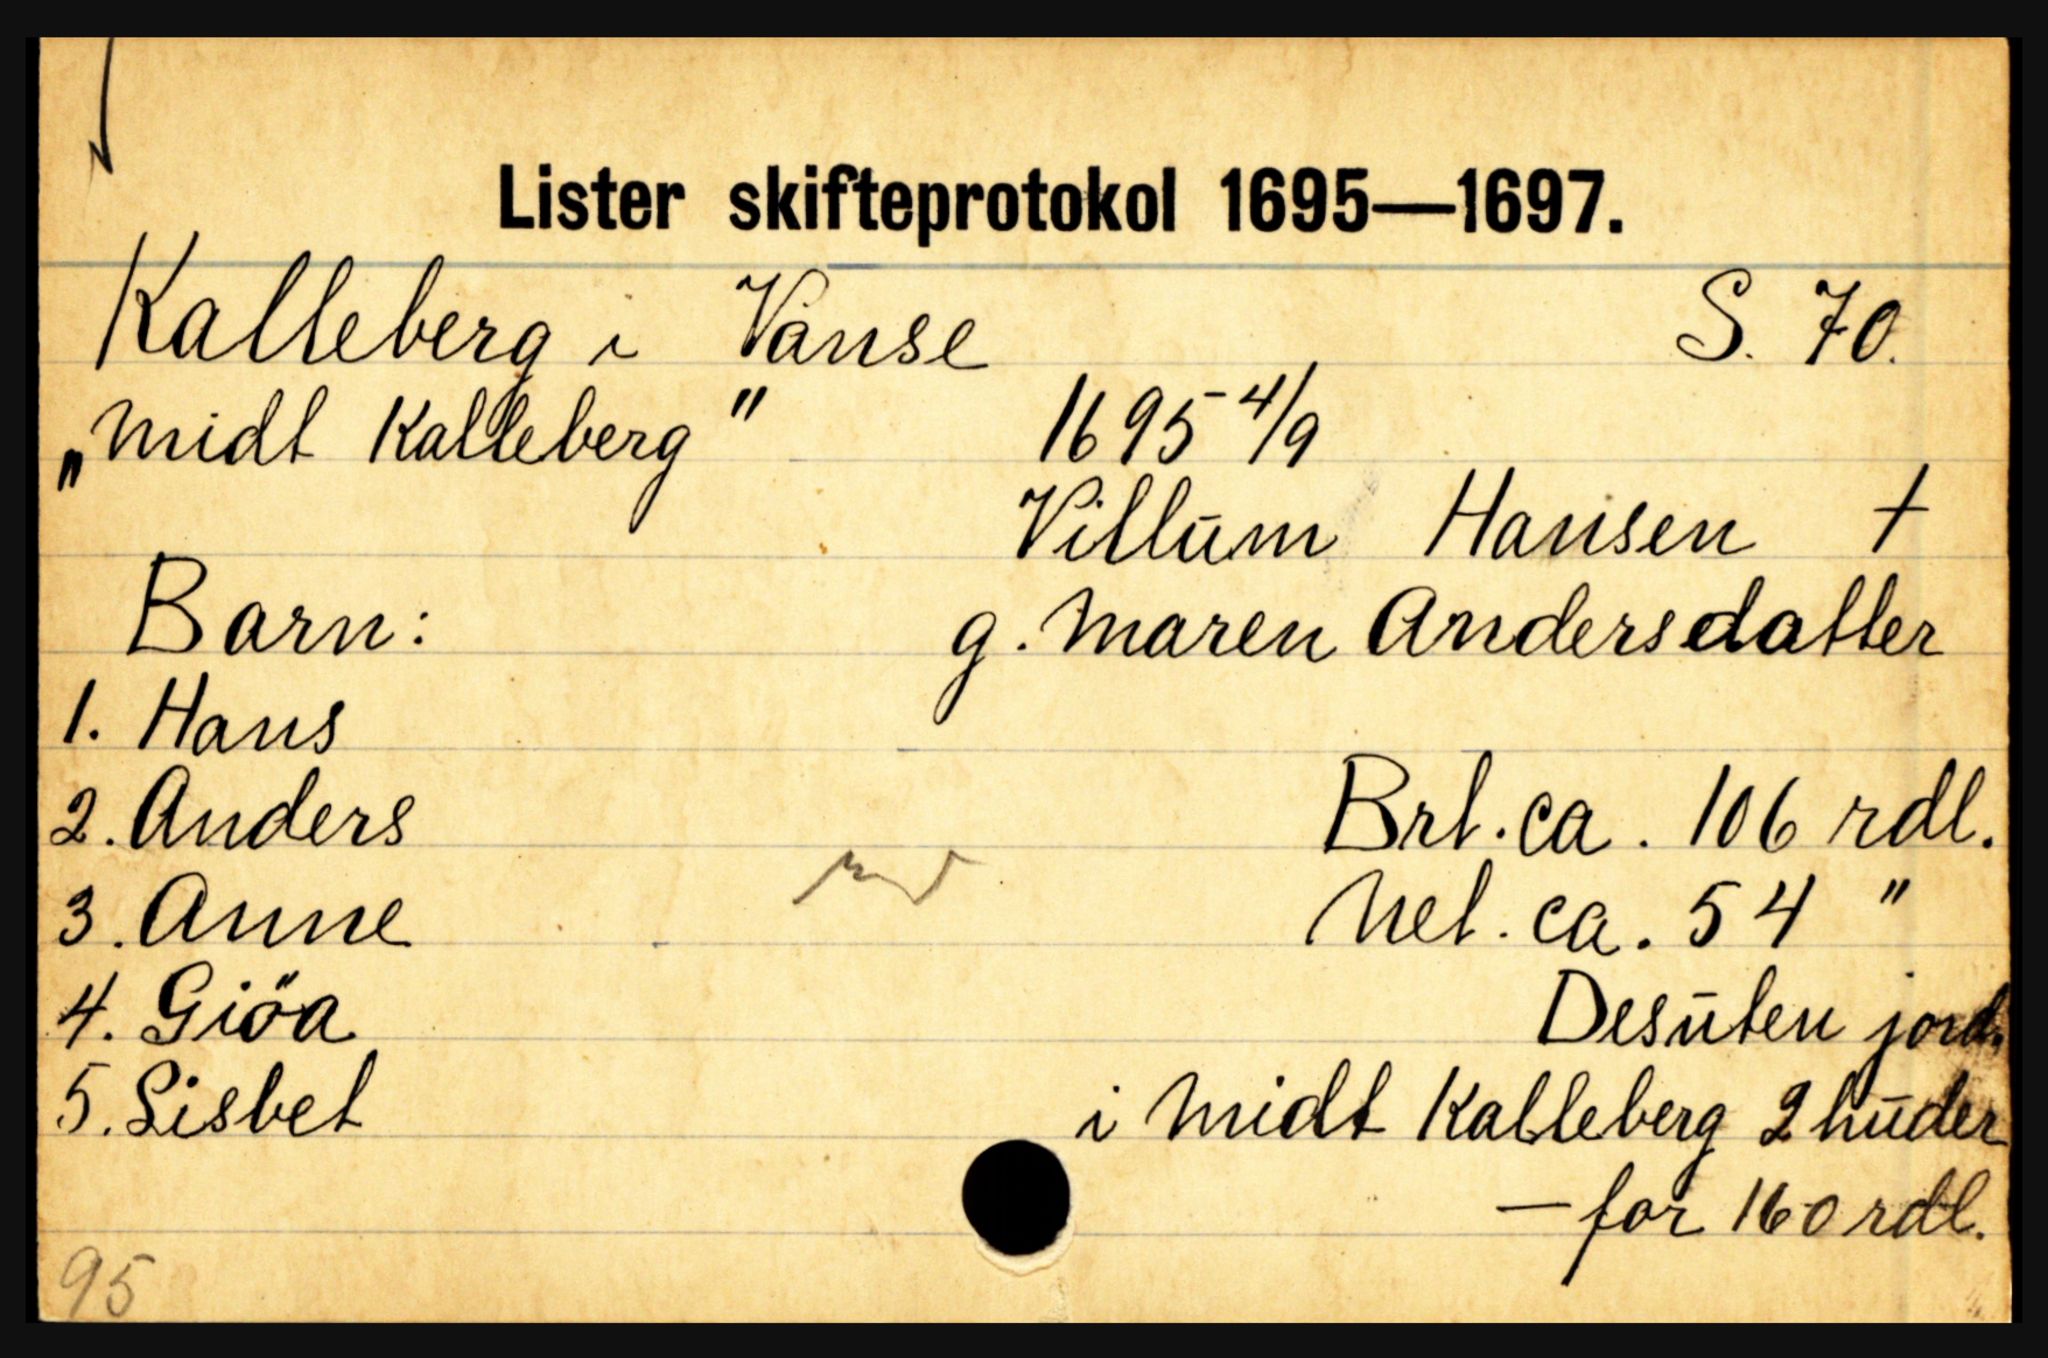 Lister skifteprotokol 1695—1697.
Kalleberg i Vanse S. 70.
„Midt Kalleberg" 1695 4/9
Villum Hansen †
Barn: g. Maren Andersdatter
1. Hans
2. Anders Brt. ca. 106 rdl.
3. Anne Net. ca. 54 "
4. Giöa Desuten jord.
5. Lisbet i Midt Kalleberg 2 huder
— for 160 rdl.
95